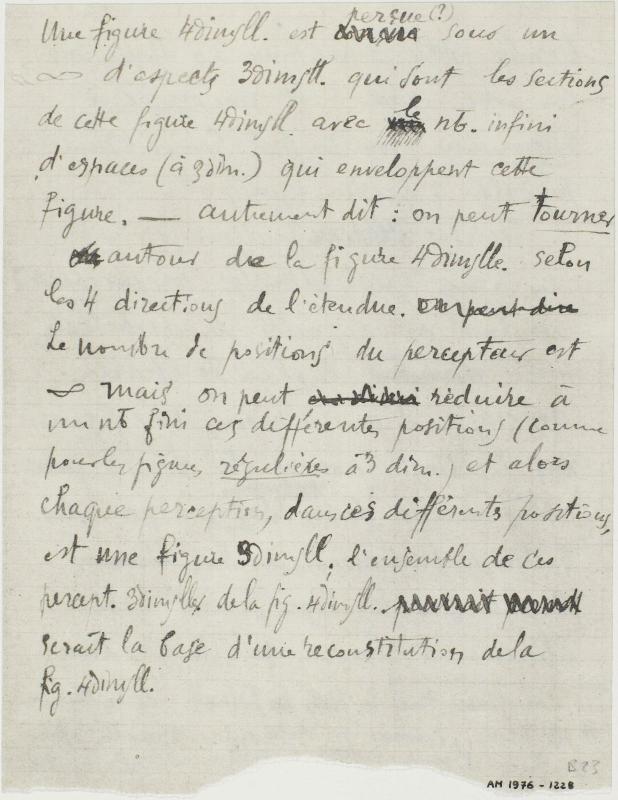 persue (?)
Une figure 4dimsll. est sous un
∞ d'aspects 3dimsll. qui sont les sections
de cette figure 4dimsll. avec le nb. infini
d'espaces (à 3dim.) qui enveloppent cette
figure. — autrement dit : on peut tourner
autour de la figure 4dimslle. selon
les 4 directions de l'étendue. on peut dire
Le nombre de positions du percepteur est
∞ mais on peut réduire à
un nb fini ces différentes positions (comme
pour les figures régulières à 3 dim.) et alors
chaque perception, dans ces différentes positions,
est une figure 3dimsll; l'ensemble de ces
percept. 3dimslles de la fig. 4dimsll.
serait la base d'une reconstitution de la
fig. 4dimsll.
B23
AM 1976 - 1228